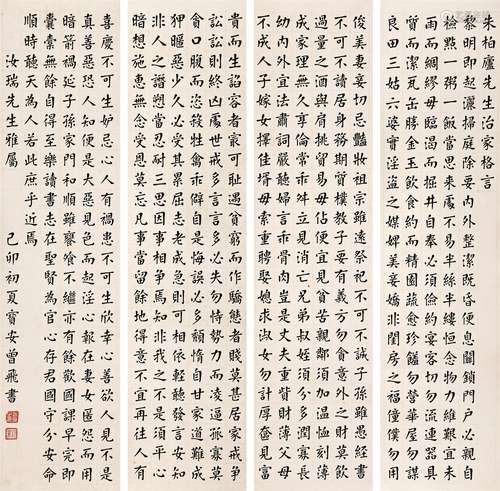 朱柏廬先生治家格言
黎明即起灑掃庭除要內外整潔既昏便息關鎖門户必親自
檢點一粥一飯當思來處不易半絲半縷恒念物力維艱宜未
雨而綢繆毋臨渴而掘井自奉必須儉約宴客切勿流連器具
質而潔瓦缶勝金玉飲食約而精園蔬愈珍饈勿營華屋勿謀
良田三姑六婆實淫盜之媒婢美妾嬌非閨房之福僮僕勿用
俊美妻妾切忌豔妝祖宗雖遠祭祀不可不誠子孫雖愚經書
不可不讀居身務期質樸教子要有義方勿貪意外之財莫飲
過量之酒與肩挑貿易毋佔便宜見貧苦親鄰須加溫恤刻薄
成家理無久享倫常乖舛立見消亡兄弟叔姪須分多潤寡長
幼內外宜法肅詞嚴聽婦言乖骨肉豈是丈夫重貲財薄父母
不成人子嫁女擇佳壻毋索重聘娶媳求淑女勿計厚奩見富
貴而生諂容者最可恥遇貧窮而作驕態者賤莫甚居家戒爭
訟訟則終凶處世戒多言言多必失勿恃勢力而凌逼孤寡毋
貪口腹而恣殺牲禽乖僻自是悔誤必多頹惰自甘家道難成
狎暱惡少久必受其累屈志老成急則可相依輕聽發言安知
非人之譖愬當忍耐三思因事相爭安知非我之不是須平心
暗想施惠無念受恩莫忘凡事當留餘地得意不宜再往人有
喜慶不可生妒忌心人有禍患不可生欣幸心善欲人見不是
真善惡恐人知便是大惡見色而起淫心報在妻女匿怨而用
暗箭禍延子孫家門和順雖饔飧不繼亦有餘歡國課早完即
囊橐無餘自得至樂讀書志在聖賢為官心存君國守分安命
順時聽天為人若此庶乎近焉
汝瑞先生雅屬 己卯初夏寶安曾飛書